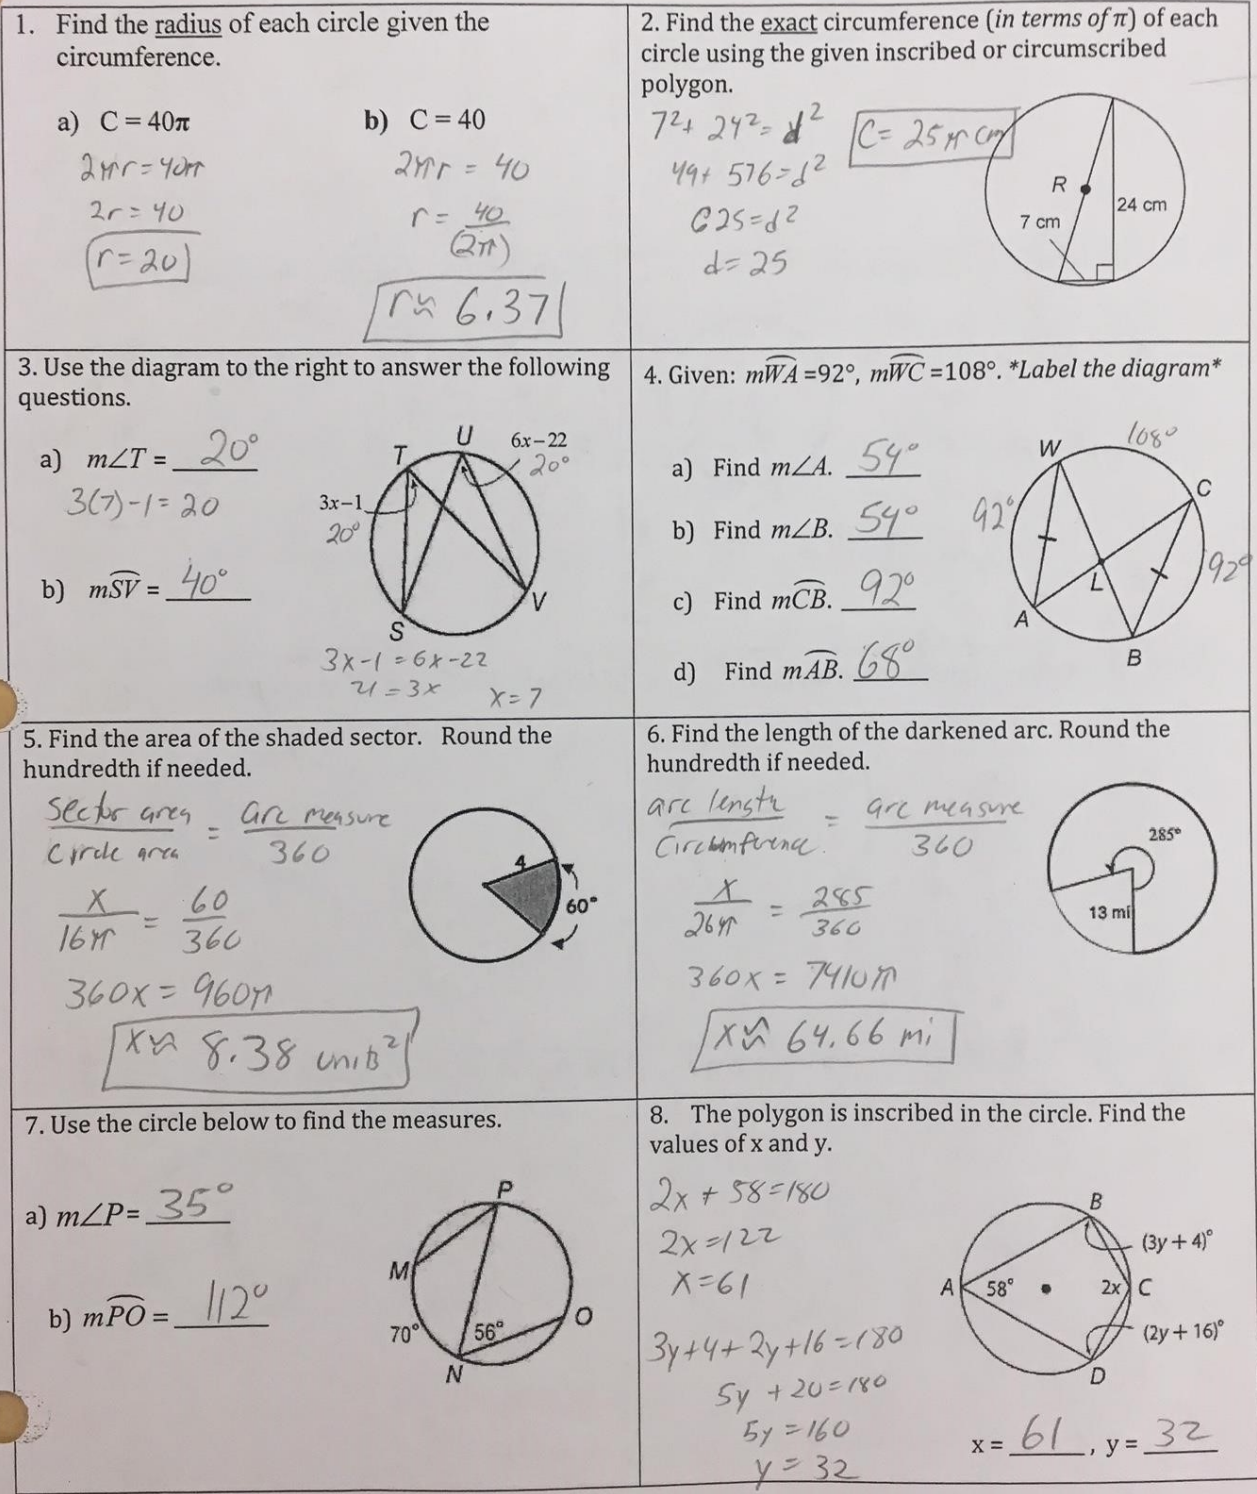 1. Find the radius of each circle given the
circumference.
a) C = 40π
2πr = 40π
2r = 40
r = 20
b) C = 40
2πr = 40
r = 40
(2π)
r ≈ 6.37
2. Find the exact circumference (in terms of π) of each
circle using the given inscribed or circumscribed
polygon.
7² + 24² = d²
49 + 576 = d²
625 = d²
d = 25
C = 25π cm
R
7 cm
24 cm
3. Use the diagram to the right to answer the following
questions.
a) m∠T = 20°
3(7)-1 = 20
b) mSV = 40°
T
U
6x−22
20°
3x−1
20°
S
V
3x-1 = 6x-22
21 = 3x
x = 7
4. Given: mWA =92°, mWC =108°. *Label the diagram*
a) Find m∠A. 54°
b) Find m∠B. 54°
c) Find mCB. 92°
d) Find mAB. 68°
W
108°
C
92°
92°
L
A
B
5. Find the area of the shaded sector. Round the
hundredth if needed.
Sector area = arc measure
Circle area 360
x = 60
16π 360
360x = 960π
x ≈ 8.38 units²
4
60°
6. Find the length of the darkened arc. Round the
hundredth if needed.
arc length = arc measure
Circumference. 360
x = 285
26π 360
360x = 7410π
x ≈ 64.66 mi
285°
13 mi
7. Use the circle below to find the measures.
a) m∠P= 35°
b) mPO = 112°
P
M
O
70°
56°
N
8. The polygon is inscribed in the circle. Find the
values of x and y.
2x + 58 = 180
2x = 122
x = 61
3y+4+2y+16 = 180
5y + 20 = 180
5y = 160
y = 32
B
(3y + 4)°
A
58°
2x
C
(2y + 16)°
D
x = 61 , y = 32